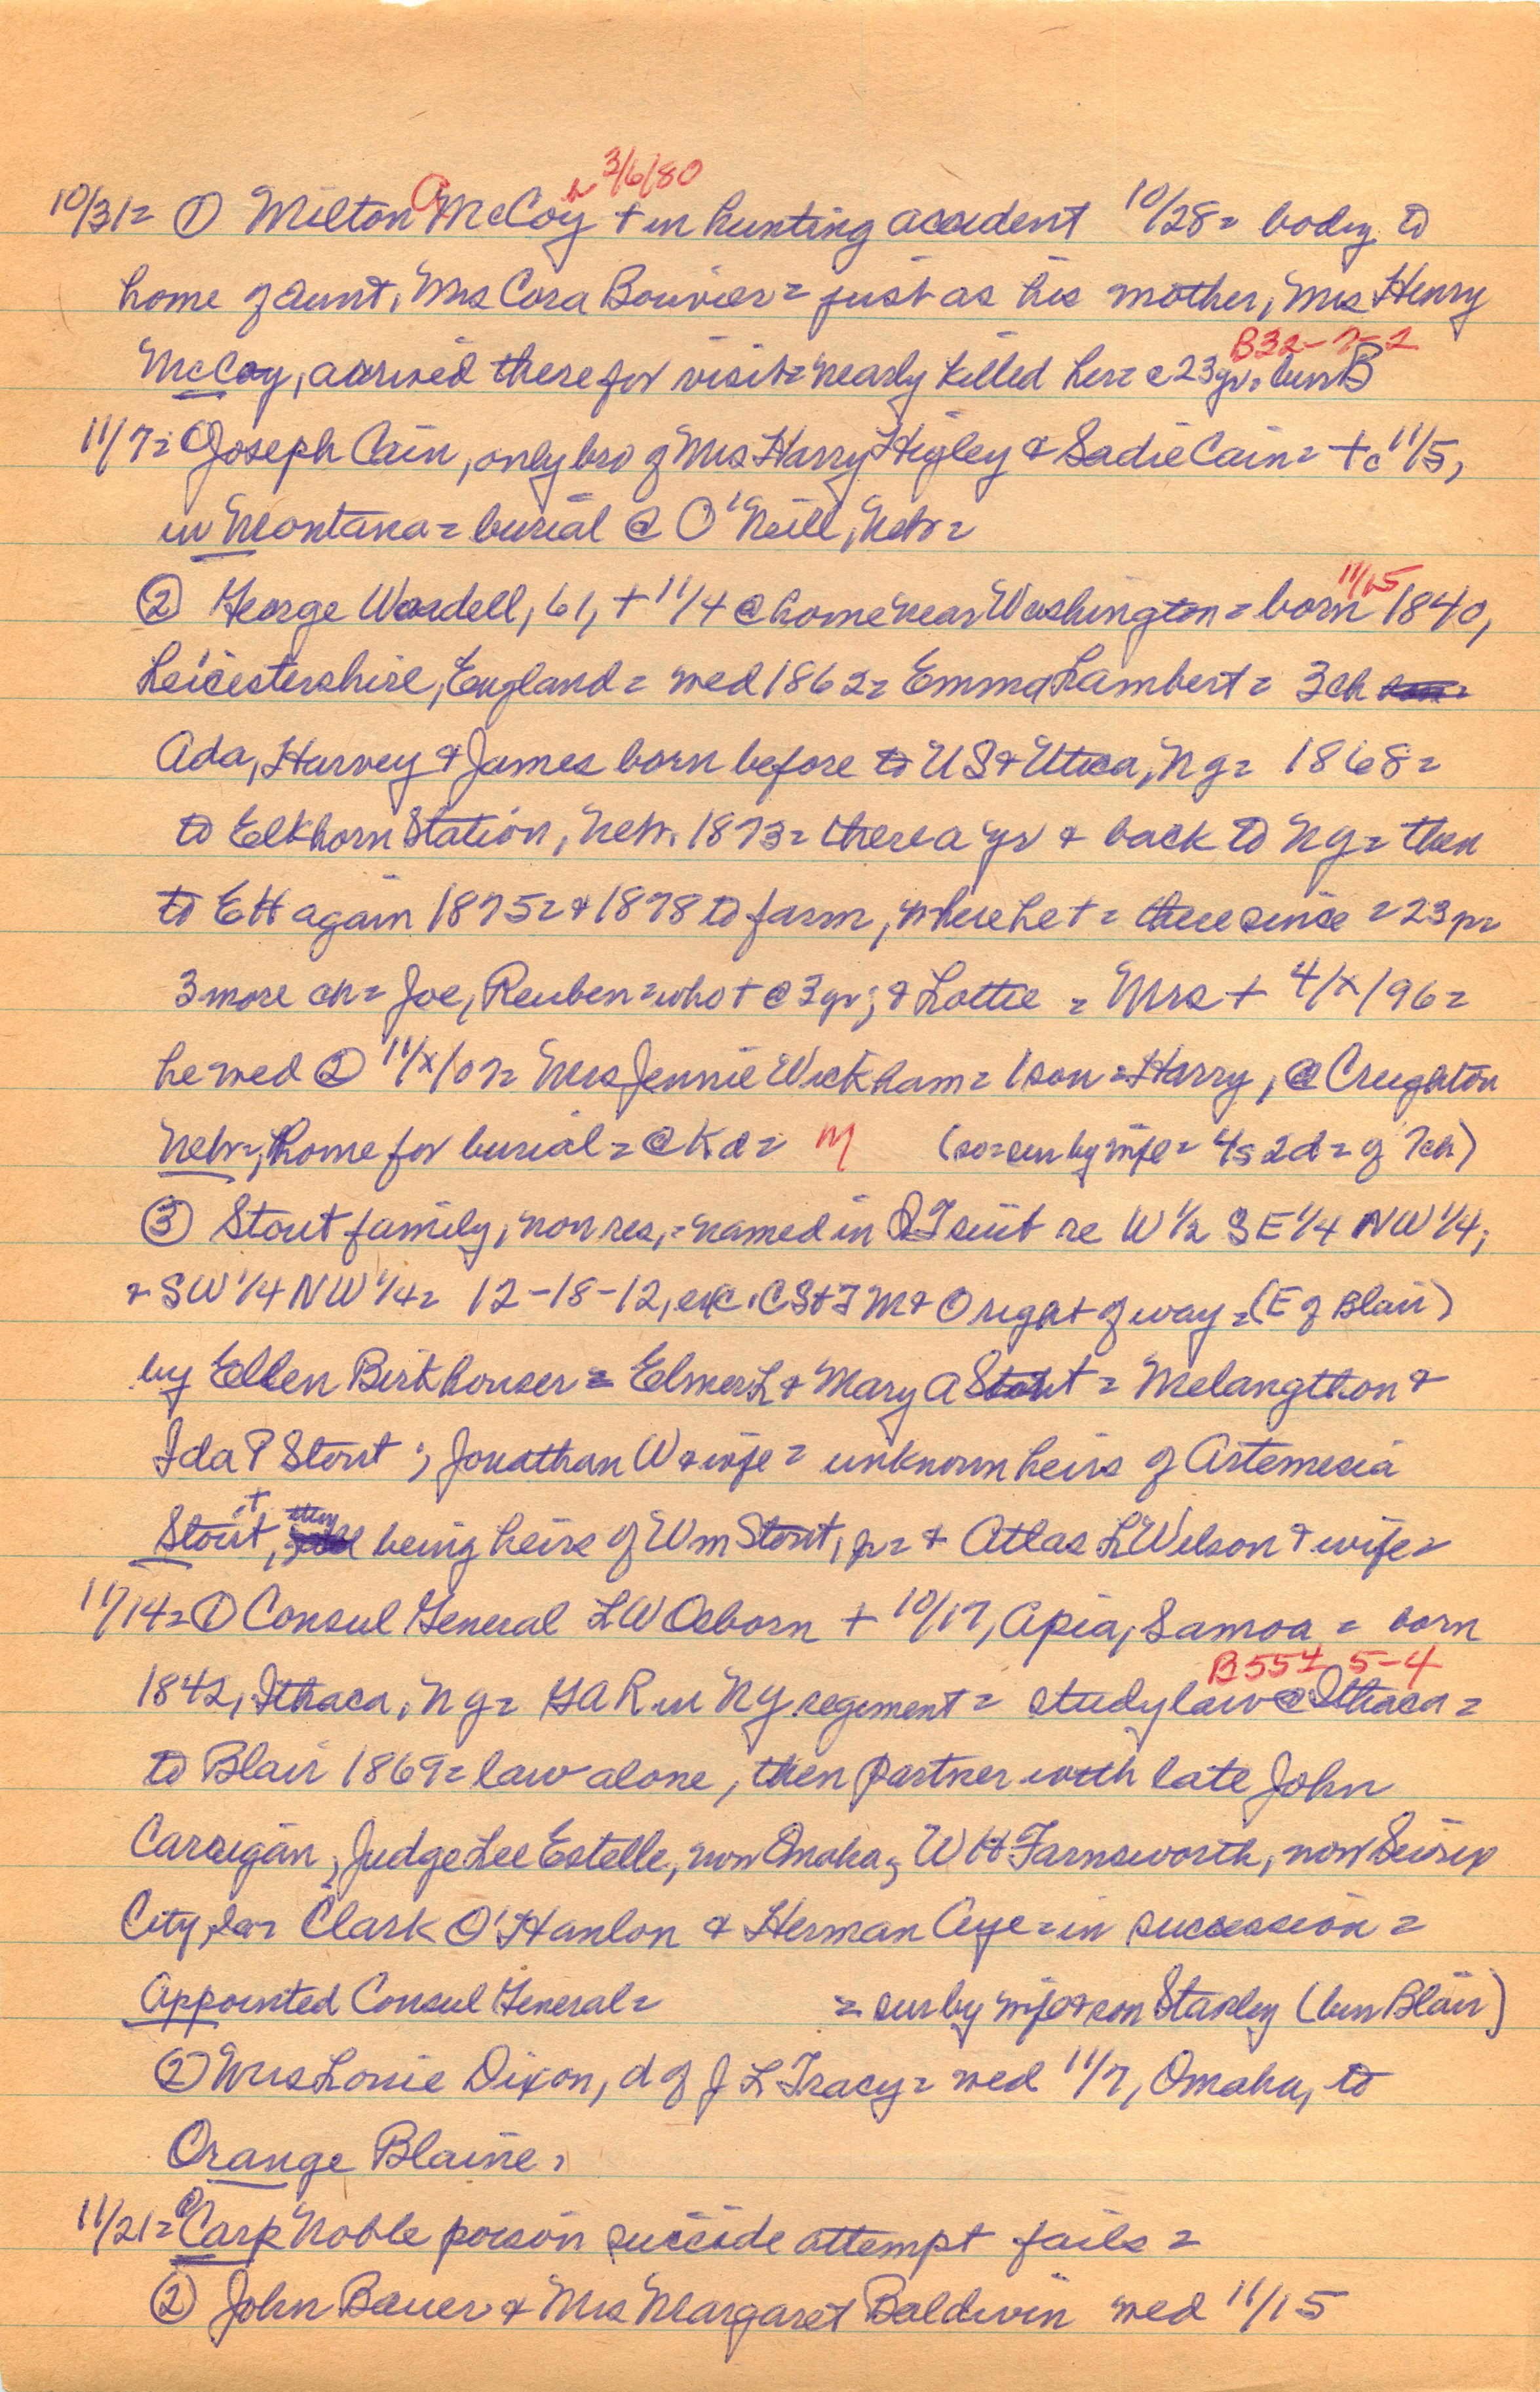 10/31= ① Milton A McCoy b 3/6/80 + in hunting accident 10/28= body to
home of aunt, Mrs Cora Bouvier= just as his mother, Mrs Henry
McCoy, arrived there for visit= nearly killed her= c 23 yr= bur B B32-7-2
11/7= ① Joseph Cain, only bro of Mrs Harry Higley & Sadie Cain= + c 11/5,
in Montana= burial @ O'Neill, Nebr=
② George Wardell, 61, + 11/4 @ home near Washington= born 11/15 1840,
Leicestershire, England= wed 1862= Emma Lambert= 3 ch
Ada, Harvey & James born before to US & Utica, Ny= 1868=
to Elkhorn Station, Nebr. 1873= there a yr & back to Ny= then
to EH again 1875= & 1878 to farm, where he += there since = 23 yr=
3 more ch= Joe, Reuben= who + @ 3 yr; & Lottie = Mrs + 4/x/96=
he wed ② 11/x/07= Mrs Jennie Wickham= 1 son= Harry, @ Creighton
Nebr=, home for burial= @ Kd= M (so= sur by wife= 4s 2d= of 7ch)
③ Stout family, non res,= named in QT suit re W 1/2 SE 1/4 NW 1/4;
& SW 1/4 NW 1/4= 12-18-12, exc. C St P M & O right of way= (E of Blair)
by Ellen Birkhouser= Elmer L & Mary A Stout= Melangthon &
Ida P Stout; Jonathan W & wife= unknown heirs of Artemesia
Stout, + they being heirs of Wm Stout, & Atlas L Wilson & wife=
11/14= ① Consul General L W Osborn + 10/17, Apia, Samoa= born
1842, Ithaca, Ny= GAR in NY regiment= study law @ Ithaca= B554 5-4
to Blair 1869= law alone, then partner with late John
Carrigan, Judge Lee Estelle, now Omaha, W H Farnsworth, now Sioux
City, Ia= Clark O'Hanlon & Herman Aye= in succession=
Appointed Consul General= = sur by wife & son Stanley (bur Blair)
② Mrs Louie Dixon, d of J L Tracy= wed 11/7, Omaha, to
Orange Blaine,
11/21= ① Carp Noble poison suicide attempt fails=
② John Bauer & Mrs Margaret Baldwin wed 11/15